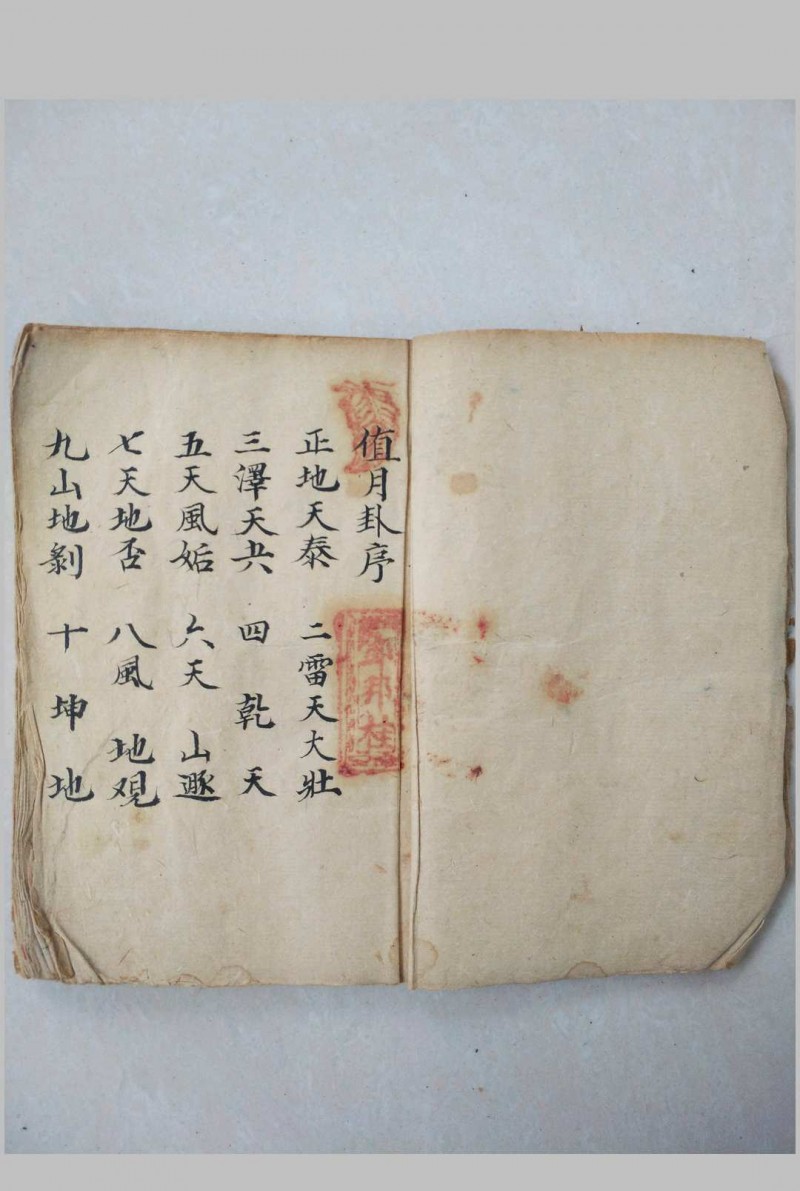 值月卦序
正地天泰 二雷天大壯
三澤天夬 四乾天
五天風姤 六天山遯
七天地否 八風地观
九山地剝 十坤地